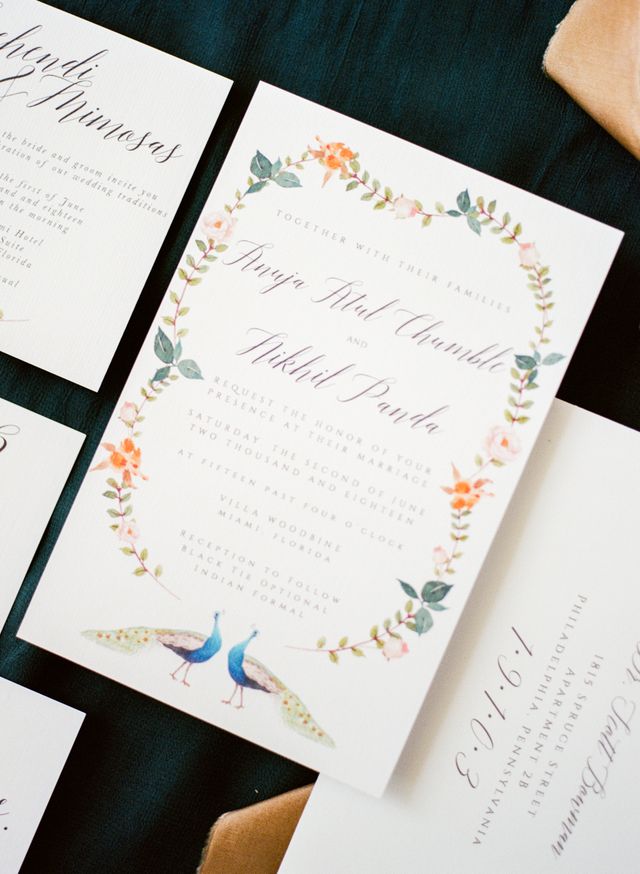 ehendi
& Mimosas
the bride and groom invite you
ration of our wedding traditions
the first of June
and and eighteen
in the morning
mi Hotel
Suite
Florida
sual
TOGETHER WITH THEIR FAMILIES
Anuja Atul Chumble
AND
Nikhil Panda
REQUEST THE HONOR OF YOUR
PRESENCE AT THEIR MARRIAGE
SATURDAY, THE SECOND OF JUNE
TWO THOUSAND AND EIGHTEEN
AT FIFTEEN PAST FOUR O'CLOCK
VILLA WOODBINE
MIAMI, FLORIDA
RECEPTION TO FOLLOW
BLACK TIE OPTIONAL
INDIAN FORMAL
1815 SPRUCE STREET
APARTMENT 2B
PHILADELPHIA, PENNSYLVANIA
1·9·1·0·3